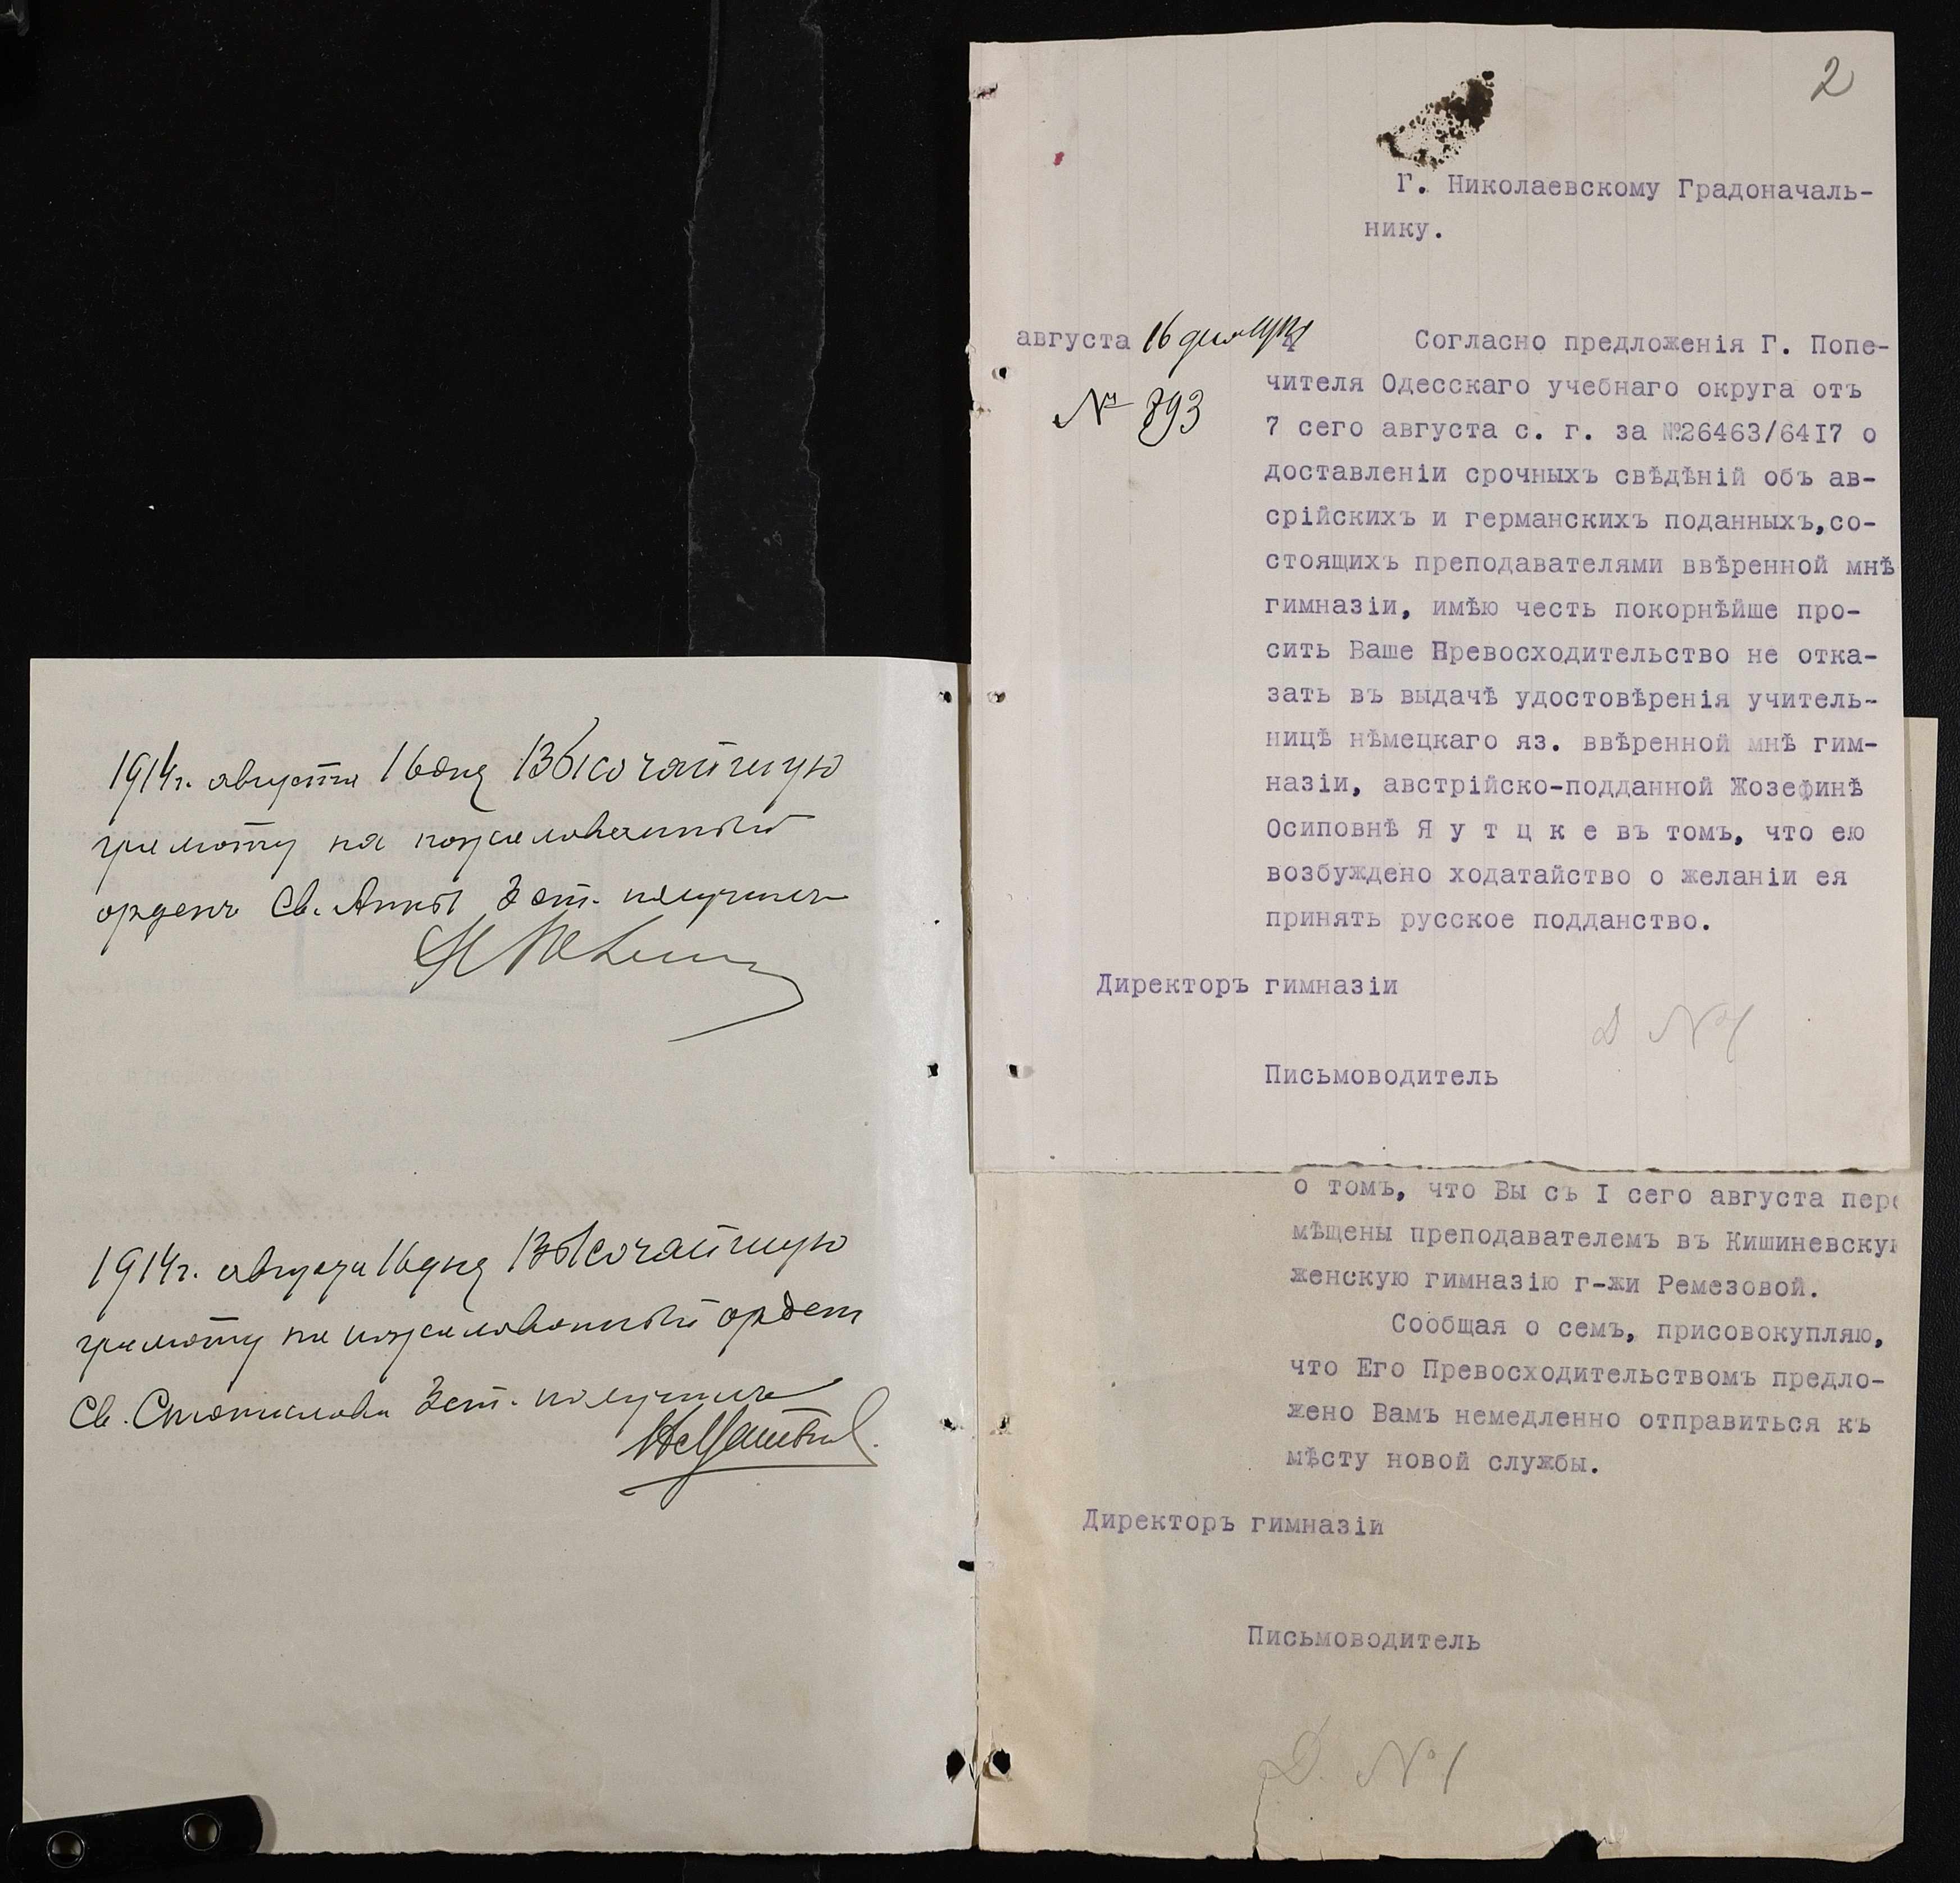 1914 г. августа 16 дня Высочайшую
грамоту на пожалованный
орденъ Св. Анны 3 ст. получилъ
1914 г. августа 16 дня Высочайшую
грамоту на пожалованный орден
Св. Станислава 3 ст. получилъ
2
Г. Николаевскому Градоначаль-
нику.
августа 16 дня
№ 893
Согласно предложенія Г. Попе-
чителя Одесскаго учебнаго округа отъ
7 сего августа с. г. за №26463/64I7 о
доставленіи срочныхъ свѣдѣній объ ав-
срійскихъ и германскихъ поданныхъ,со-
стоящихъ преподавателями ввѣренной мнѣ
гимназіи, имѣю честь покорнѣйше про-
сить Ваше Превосходительство не отка-
зать въ выдачѣ удостовѣренія учитель-
ницѣ нѣмецкаго яз. ввѣренной мнѣ гим-
назіи, австрійско-подданной Жозефинѣ
Осиповнѣ Я у т ц к е въ томъ, что ею
возбуждено ходатайство о желаніи ея
принять русское подданство.
Директоръ гимназіи
Д №1
Письмоводитель
о томъ, что Вы съ I сего августа пере
мѣщены преподавателемъ въ Кишиневскую
женскую гимназію г-жи Ремезовой.
Сообщая о семъ, присовокупляю,
что Его Превосходительствомъ предло-
жено Вамъ немедленно отправиться къ
мѣсту новой службы.
Директоръ гимназіи
Письмоводитель
Д. №1